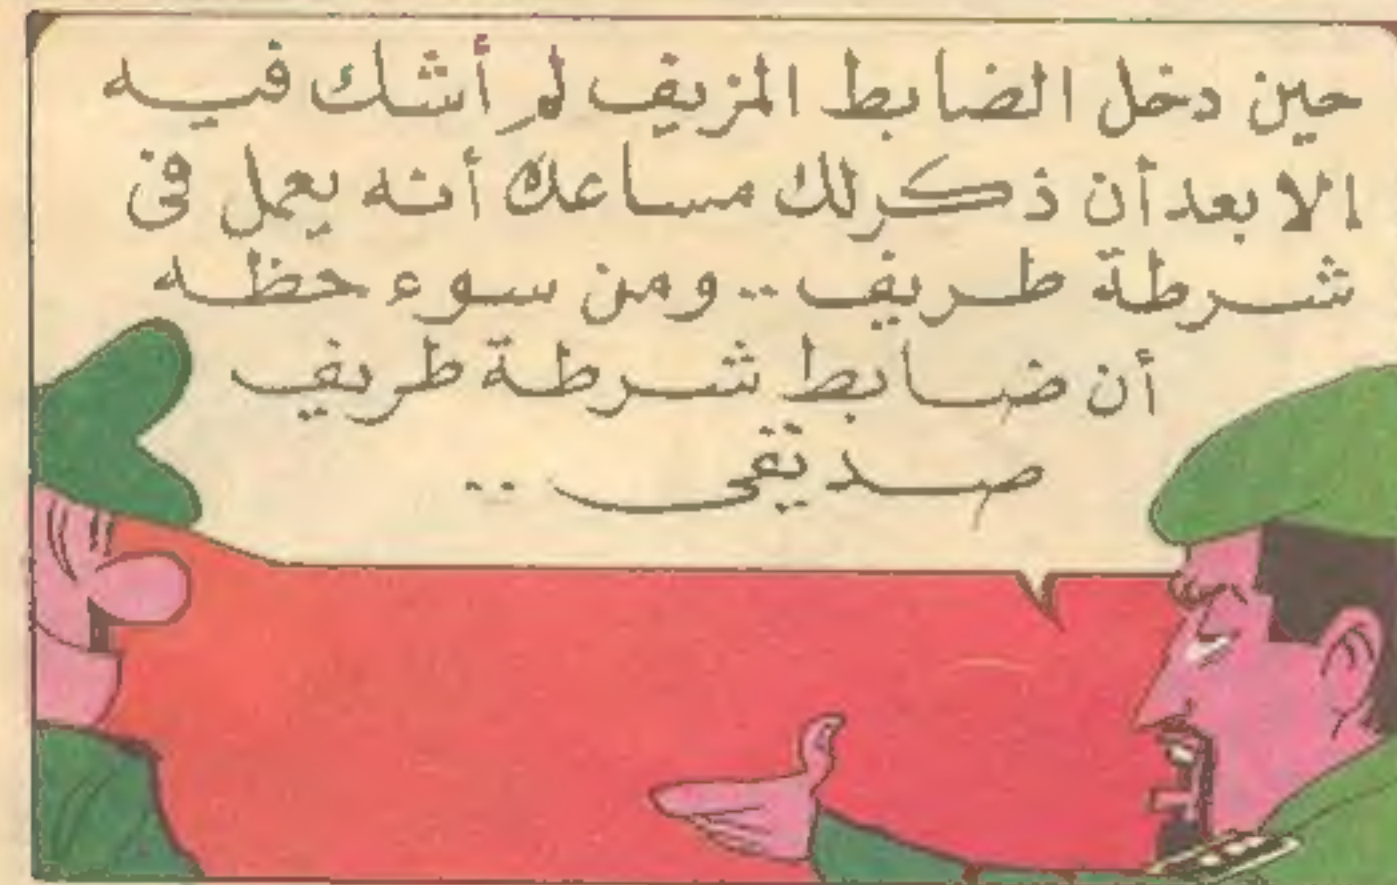 حين دخل الضابط المزيف لم أشك فيه
إلا بعد أن ذكر لك مساعده أنه يعمل فى
شرطة طريف .. ومن سوء حظه
أن ضابط شرطة طريف
صديقى ..